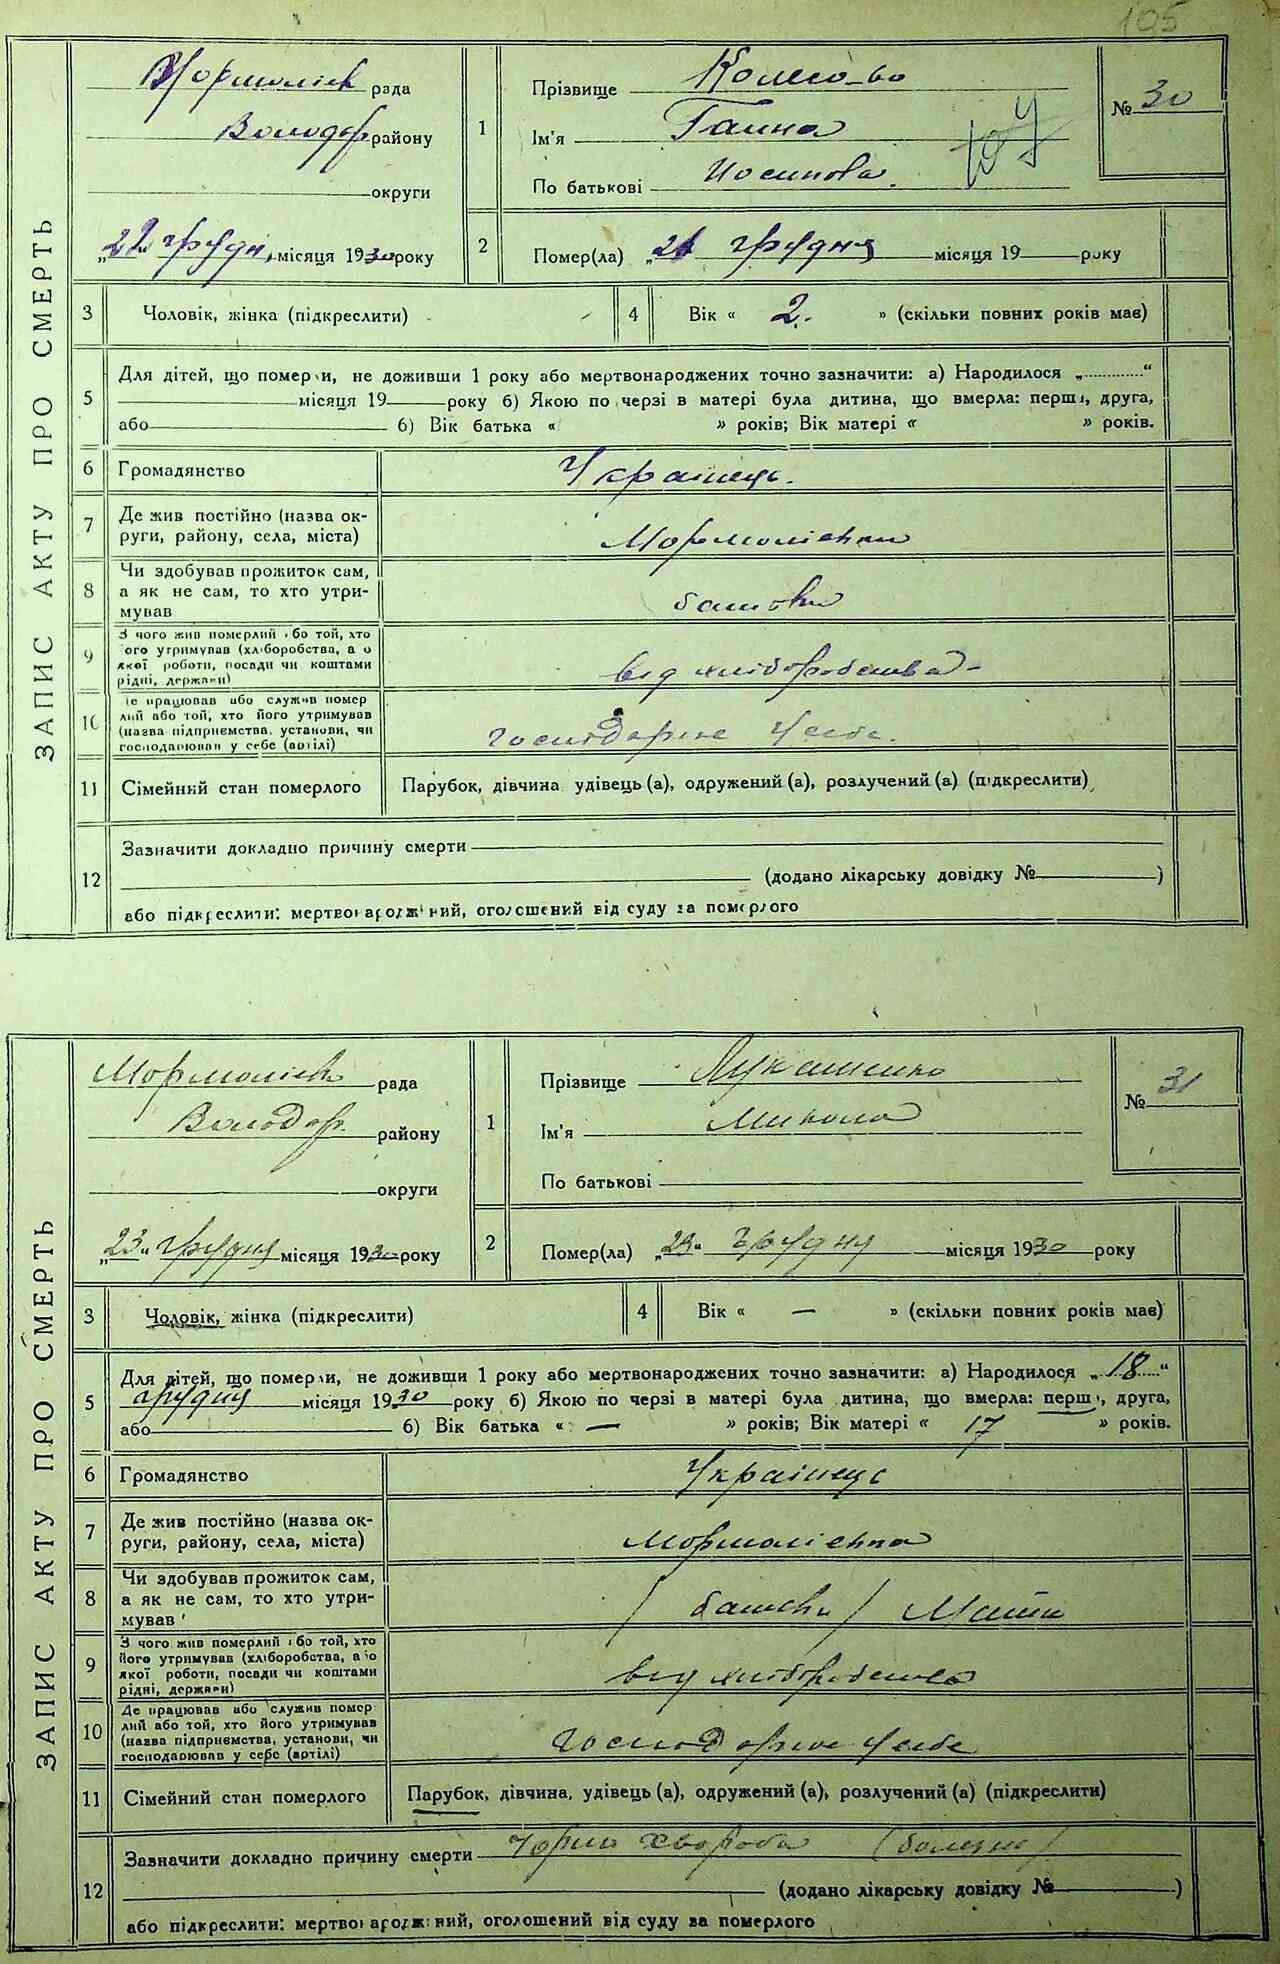 105
ЗАПИС АКТУ ПРО СМЕРТЬ
рада
Володар району
округи
„22“ грудня місяця 1930 року
1
Прізвище
Ім'я Ганна
По батькові Йосипова.
№ 30
2
Помер(ла) „21 грудня місяця 19 року
3 Чоловік, жінка (підкреслити)
4 Вік « 2. » (скільки повних років має)
5 Для дітей, що померли, не доживши 1 року або мертвонароджених точно зазначити: а) Народилося „ “
місяця 19 року б) Якою по черзі в матері була дитина, що вмерла: перша, друга,
або 6) Вік батька « » років; Вік матері « » років.
6 Громадянство Українець.
7 Де жив постійно (назва ок-
руги, району, села, міста) Мормоліевка
8 Чи здобував прожиток сам,
а як не сам, то хто утри-
мував батьки
9 З чого жив померлий або той, хто
його утримував (хліборобства, з
якої роботи, посади чи коштами
рідні, держави) від хліборобства
10 Де працював або служив помер
лий або той, хто його утримував
(назва підприємства, установи, чи
господарював у себе (артілі) Господарює у себе.
11 Сімейний стан померлого Парубок, дівчина удівець (а), одружений (а), розлучений (а) (підкреслити)
12 Зазначити докладно причину смерти
(додано лікарську довідку № )
або підкреслити: мертвонароджений, оголошений від суду за померлого
ЗАПИС АКТУ ПРО СМЕРТЬ
Мормоліев рада
Володар. району
округи
„23“ грудня місяця 1930 року
1
Прізвище Лукашенко
Ім'я Микола
По батькові
№ 31
2
Помер(ла) „23“ грудня місяця 1930 року
3 Чоловік, жінка (підкреслити)
4 Вік « — » (скільки повних років має)
5 Для дітей, що померли, не доживши 1 року або мертвонароджених точно зазначити: а) Народилося „18“
грудня місяця 1930 року б) Якою по черзі в матері була дитина, що вмерла: перша, друга,
або 6) Вік батька « — » років; Вік матері « 17 » років.
6 Громадянство Українець
7 Де жив постійно (назва ок-
руги, району, села, міста) Мормоліевка
8 Чи здобував прожиток сам,
а як не сам, то хто утри-
мував / батьки / Мати
9 З чого жив померлий або той, хто
його утримував (хліборобства, з
якої роботи, посади чи коштами
рідні, держави) від хліборобства
10 Де працював або служив помер
лий або той, хто його утримував
(назва підприємства, установи, чи
господарював у себе (артілі) Господарює у себе
11 Сімейний стан померлого Парубок, дівчина, удівець (а), одружений (а), розлучений (а) (підкреслити)
12 Зазначити докладно причину смерти Чорна хвороба (болезнь)
(додано лікарську довідку № )
або підкреслити: мертвонароджений, оголошений від суду за померлого